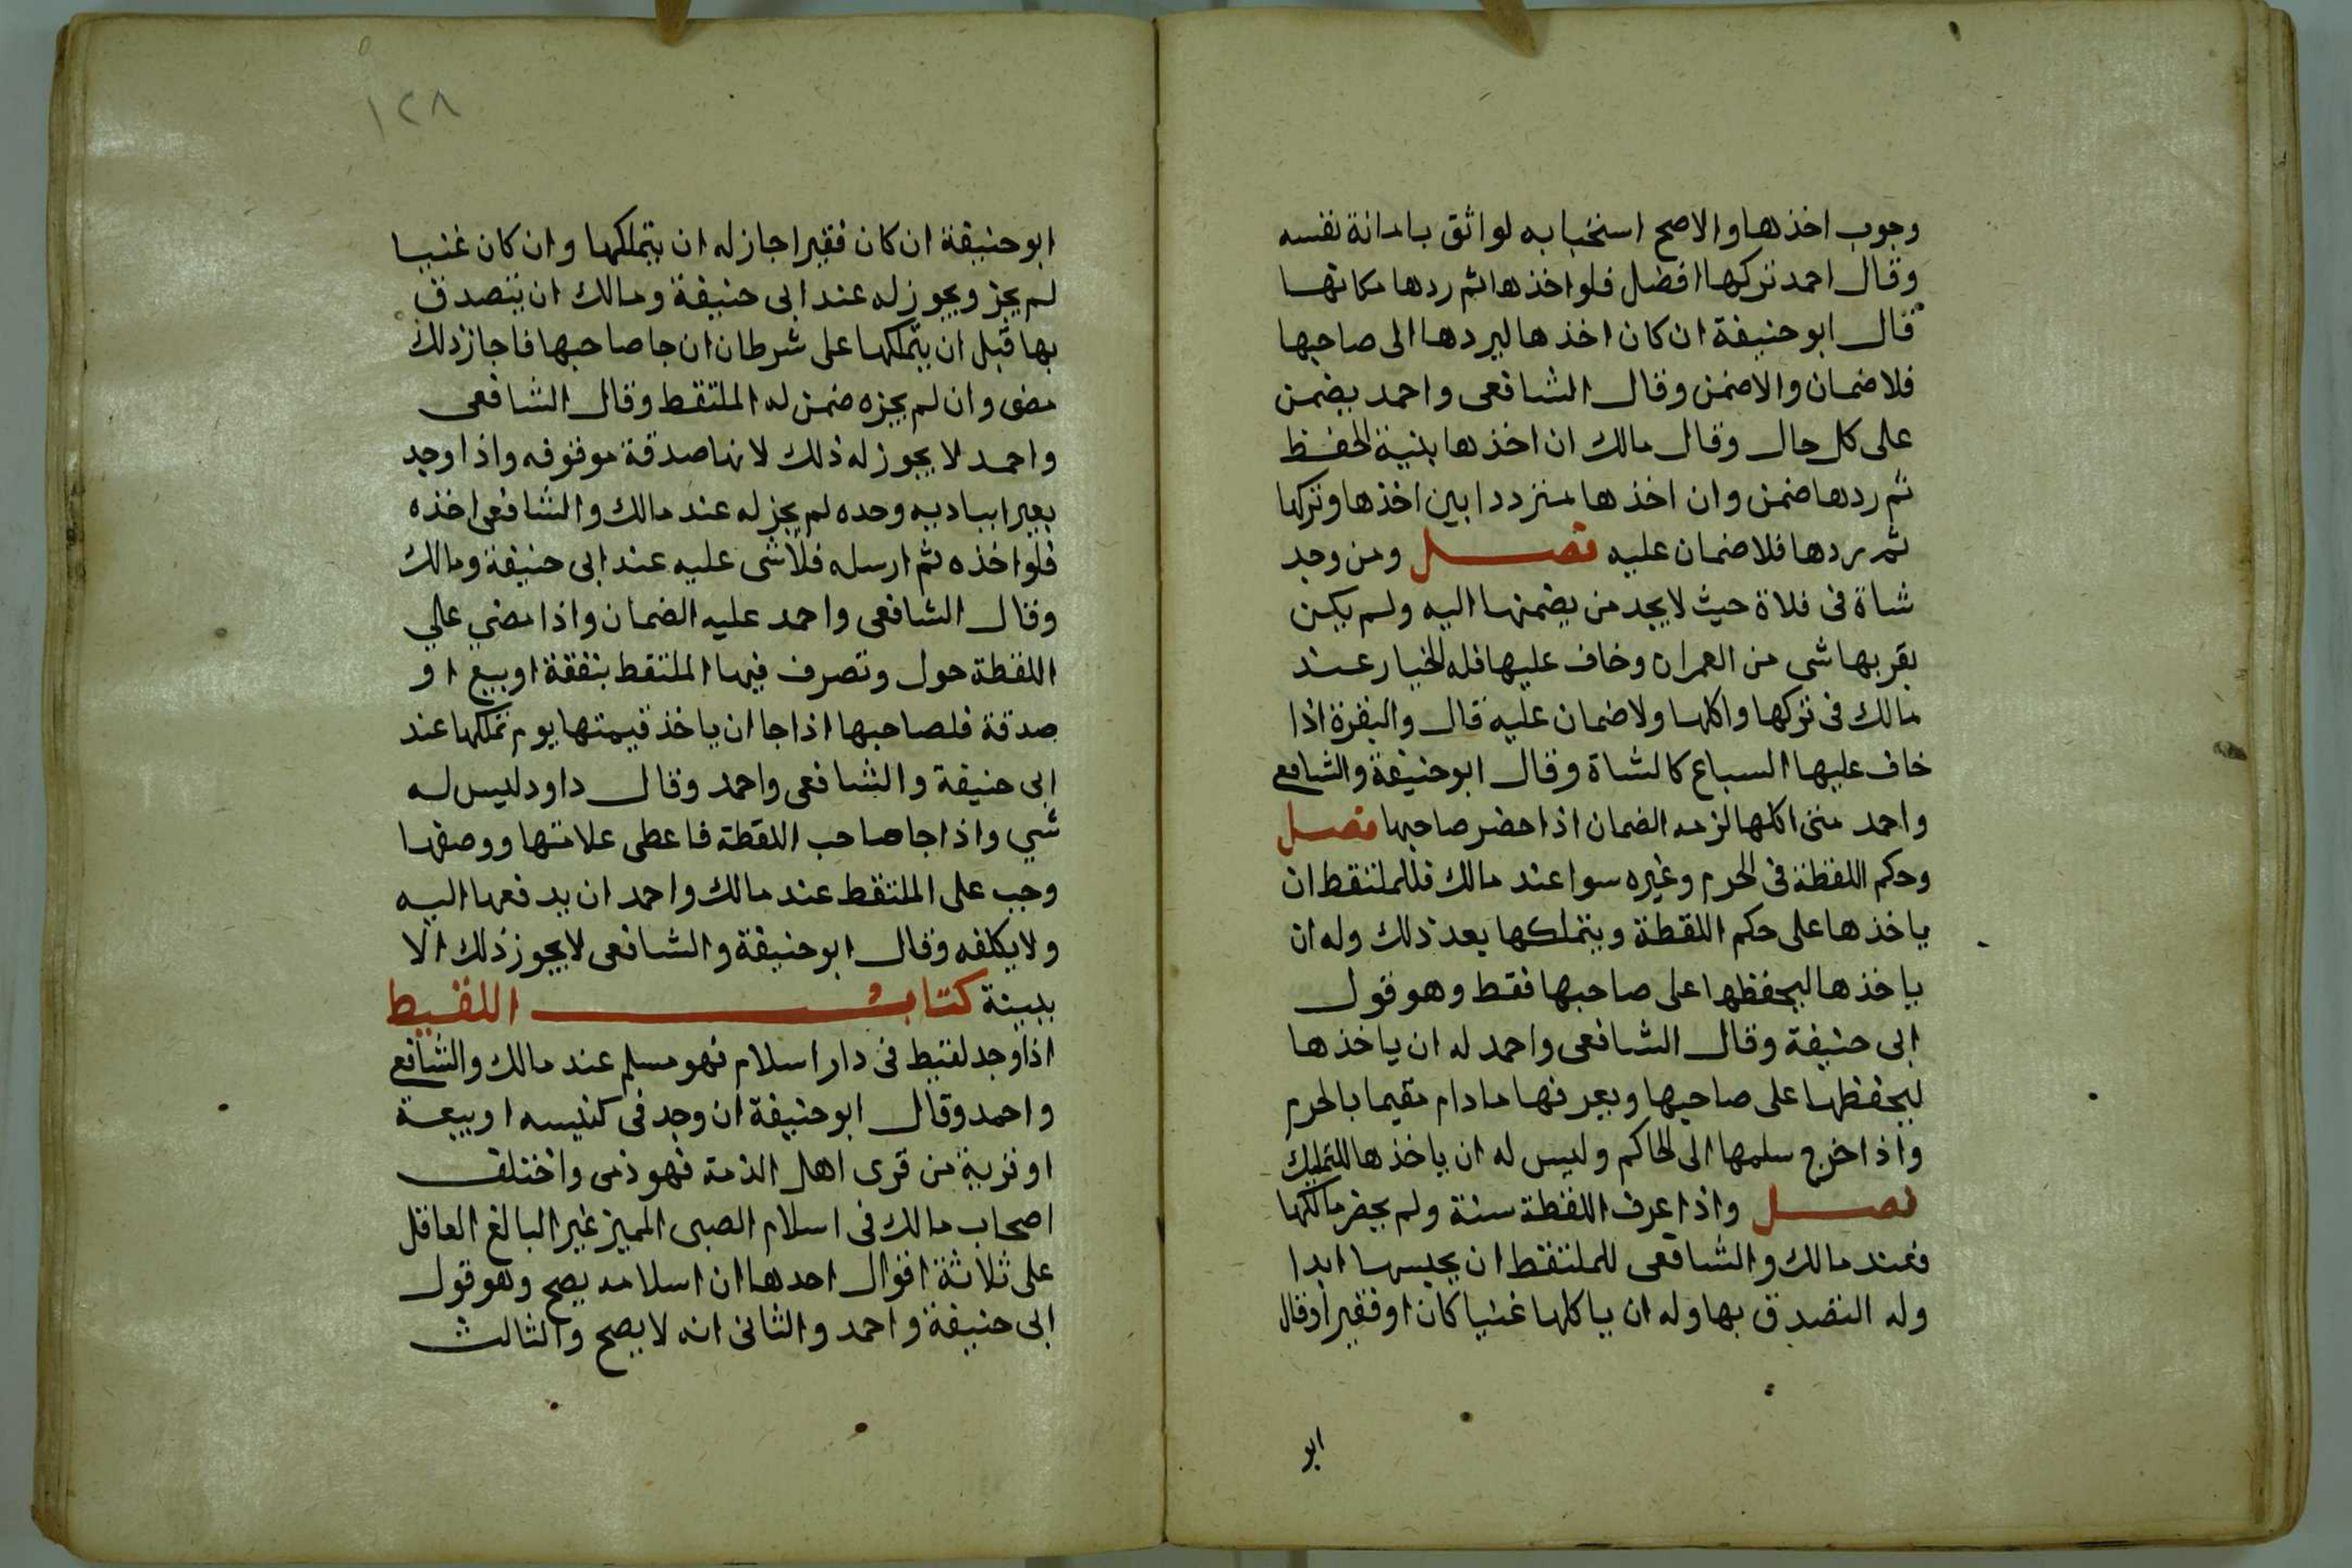 وجوب اخذها والاصح استحبابه لواثق بامانة نفسه
وقال احمد تركها افضل فلو اخذها ثم ردها مكانها
قال ابو حنيفة ان كان اخذها ليردها الى صاحبها
فلا ضمان والا ضمن وقال الشافعى واحمد يضمن
على كل حال وقال مالك ان اخذها بنية الحفظ
ثم ردها ضمن وان اخذها مترددا بين اخذها وتركها
ثم ردها فلا ضمان عليه فصل ومن وجد
شاة فى فلاة حيث لا يجد من يضمنها اليه ولم يكن
بقربها شى من العمران وخاف عليها فله الخيار عند
مالك فى تركها واكلها ولا ضمان عليه قال والبقرة اذا
خاف عليها السباع كالشاة وقال ابو حنيفة والشافعى
واحمد متى اكلها لزمه الضمان اذا حضر صاحبها فصل
وحكم اللقطة فى الحرم وغيره سوا عند مالك فللملتقط ان
ياخذها على حكم اللقطة ويتملكها بعد ذلك وله ان
ياخذها ليحفظها على صاحبها فقط وهو قول
ابى حنيفة وقال الشافعى واحمد له ان ياخذها
ليحفظها على صاحبها ويعرفها مادام مقيما بالحرم
واذا خرج سلمها الى الحاكم وليس له ان ياخذها للتمليك
فصل واذا عرف اللقطة سنة ولم يحضر مالكها
فعند مالك والشافعى للملتقط ان يحبسها ابدا
وله التصدق بها وله ان ياكلها غنيا كان او فقيرا وقال
ابو
١٢٨
ابو حنيفة ان كان فقيرا جاز له ان يتملكها وان كان غنيا
لم يجز ويجوز له عند ابى حنيفة ومالك ان يتصدق
بها قبل ان يتملكها على شرط ان ان جا صاحبها فاجاز ذلك
مضى وان لم يجزه ضمن له الملتقط وقال الشافعى
واحمد لا يجوز له ذلك لانها صدقة موقوفه واذا وجد
بعيرا بباديه وحده لم يجز له عند مالك والشافعى اخذه
فلو اخذه ثم ارسله فلا شى عليه عند ابى حنيفة ومالك
وقال الشافعى واحمد عليه الضمان واذا مضي علي
اللقطة حول وتصرف فيها الملتقط بنفقة او بيع او
صدقة فلصاحبها اذا جا ان ياخذ قيمتها يوم تملكها عند
ابى حنيفة والشافعى واحمد وقال داود ليس له
شي واذا جا صاحب اللقطة فاعطى علامتها ووصفها
وجب على الملتقط عند مالك واحمد ان يدفعها اليه
ولا يكلفه وقال ابو حنيفة والشافعى لا يجوز ذلك الا
ببينة كتاب اللقيط
اذا وجد لقيط فى دار اسلام فهو مسلم عند مالك والشافعى
واحمد وقال ابو حنيفة ان وجد فى كنيسه او بيعة
او قرية من قرى اهل الذمة فهو ذمى واختلف
اصحاب مالك فى اسلام الصبى المميز غير البالغ العاقل
على ثلاثة اقوال احدها ان اسلامه يصح وهو قول
ابى حنيفة واحمد والثانى انه لا يصح والثالث